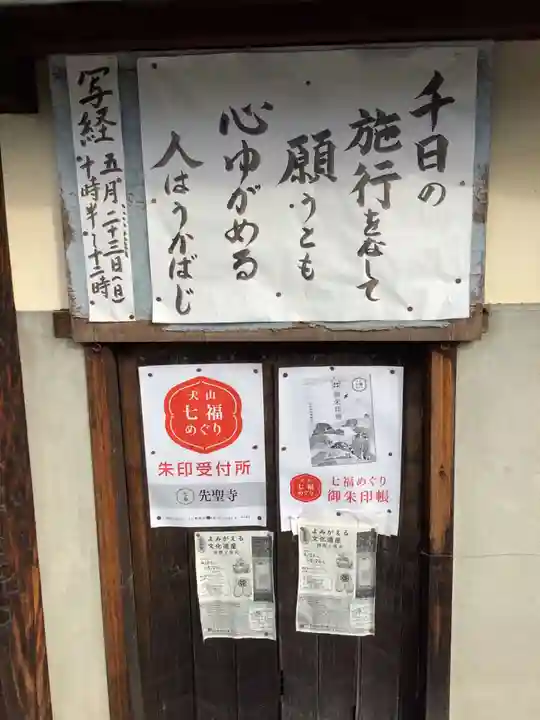 千日の
施行をなして
願うとも
心ゆがめる
人はうかばじ
写経
五月二十三日(日)
十時半〜十二時
犬山
七福
めぐり
朱印受付所
先聖寺
御朱印帳
犬山
七福
めぐり
七福めぐり
御朱印帳
よみがえる
文化遺産
よみがえる
文化遺産